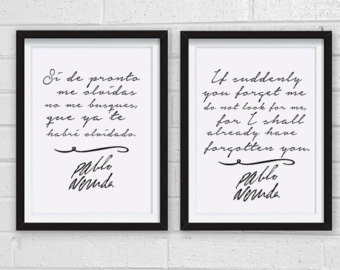 Si de pronto
me olvidas
no me busques,
que ya te
habré olvidado.
Pablo
Neruda
If suddenly
you forget me
do not look for me,
for I shall
already have
forgotten you.
Pablo
Neruda